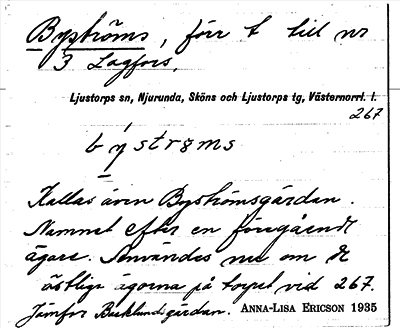 Byströms, förr t till nr
3 Lagfors.
Ljustorps sn, Njurunda, Sköns och Ljustorps tg, Västernorrl. l.
267
bystrøms
Kallas även Byströmsgården.
Namnet efter en föregående
ägare. Användes nu om de
östliga ägorna på torpet vid 267.
Jämför Backlundsgården. ANNA-LISA ERICSON 1935